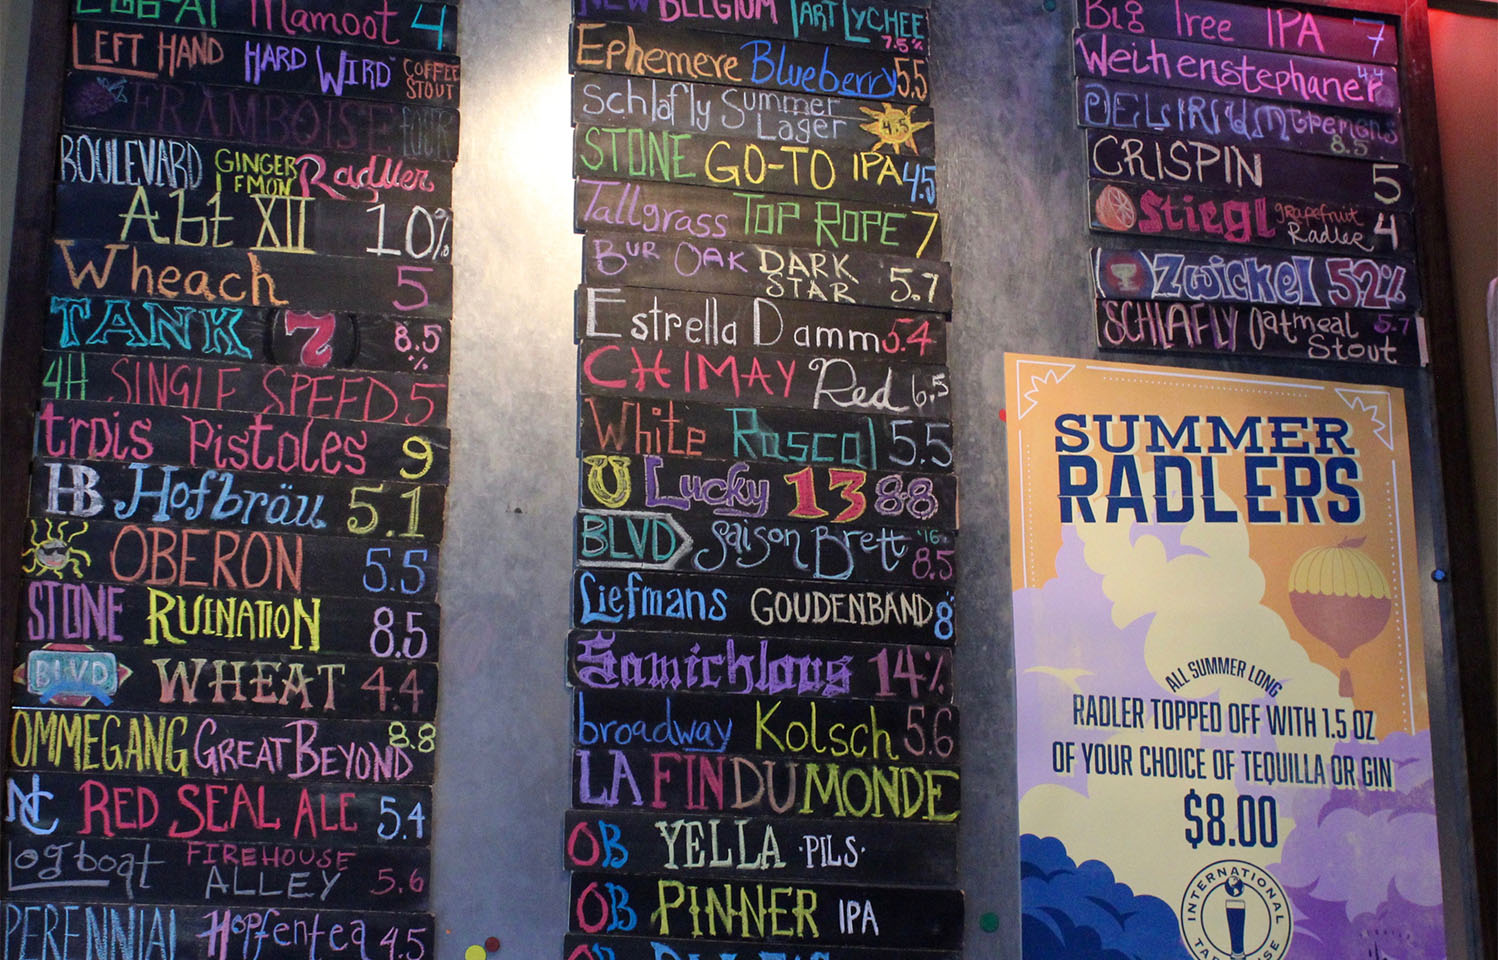 Mamoot 4
LEFT HAND HARD WIRD COFFEE STOUT
FRAMBOISE
BOULEVARD GINGER LEMON Radler
Abt XII 10%
Wheach 5
TANK 7 8.5%
4H SINGLE SPEED 5
trois Pistoles 9
HB Hofbräu 5.1
OBERON 5.5
STONE RUINATION 8.5
BLVD WHEAT 4.4
OMMEGANG GREAT BEYOND 8.8
NC RED SEAL ALE 5.4
Logboat FIREHOUSE ALLEY 5.6
PERENNIAL Hopfentea 4.5
NEW BELGIUM TART LYCHEE 7.5%
Ephemere Blueberry 5.5
Schlafly Summer Lager 4.5
STONE GO-TO IPA 4.5
Tallgrass TOP ROPE 7
BUR OAK DARK STAR 5.7
Estrella Damm 5.4
CHIMAY Red 6.5
White Rascal 5.5
U Lucky 13 8.8
BLVD Saison Brett '16 8.5
Liefmans GOUDENBAND 8
Samichlaus 14%
broadway Kolsch 5.6
LA FIN DU MONDE
OB YELLA PILS
OB PINNER IPA
OB
Big Tree IPA 7
Weihenstephaner 4.4
DELIRIUM Tremens 8.5
CRISPIN 5
Stiegl grapefruit Radler 4
Zwickel 5.2%
SCHLAFLY Oatmeal Stout 5.7
SUMMER
RADLERS
ALL SUMMER LONG
RADLER TOPPED OFF WITH 1.5 OZ
OF YOUR CHOICE OF TEQUILLA OR GIN
$8.00
INTERNATIONAL TAP HOUSE